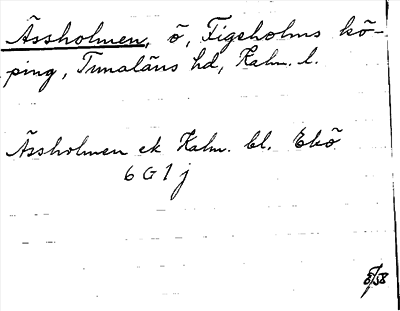 Ässholmen, ö, Figeholms kö-
ping, Tunaläns hd, Kalm. l.
Ässholmen ek Kalm. bl. Ekö
6 G 1 j
5/58